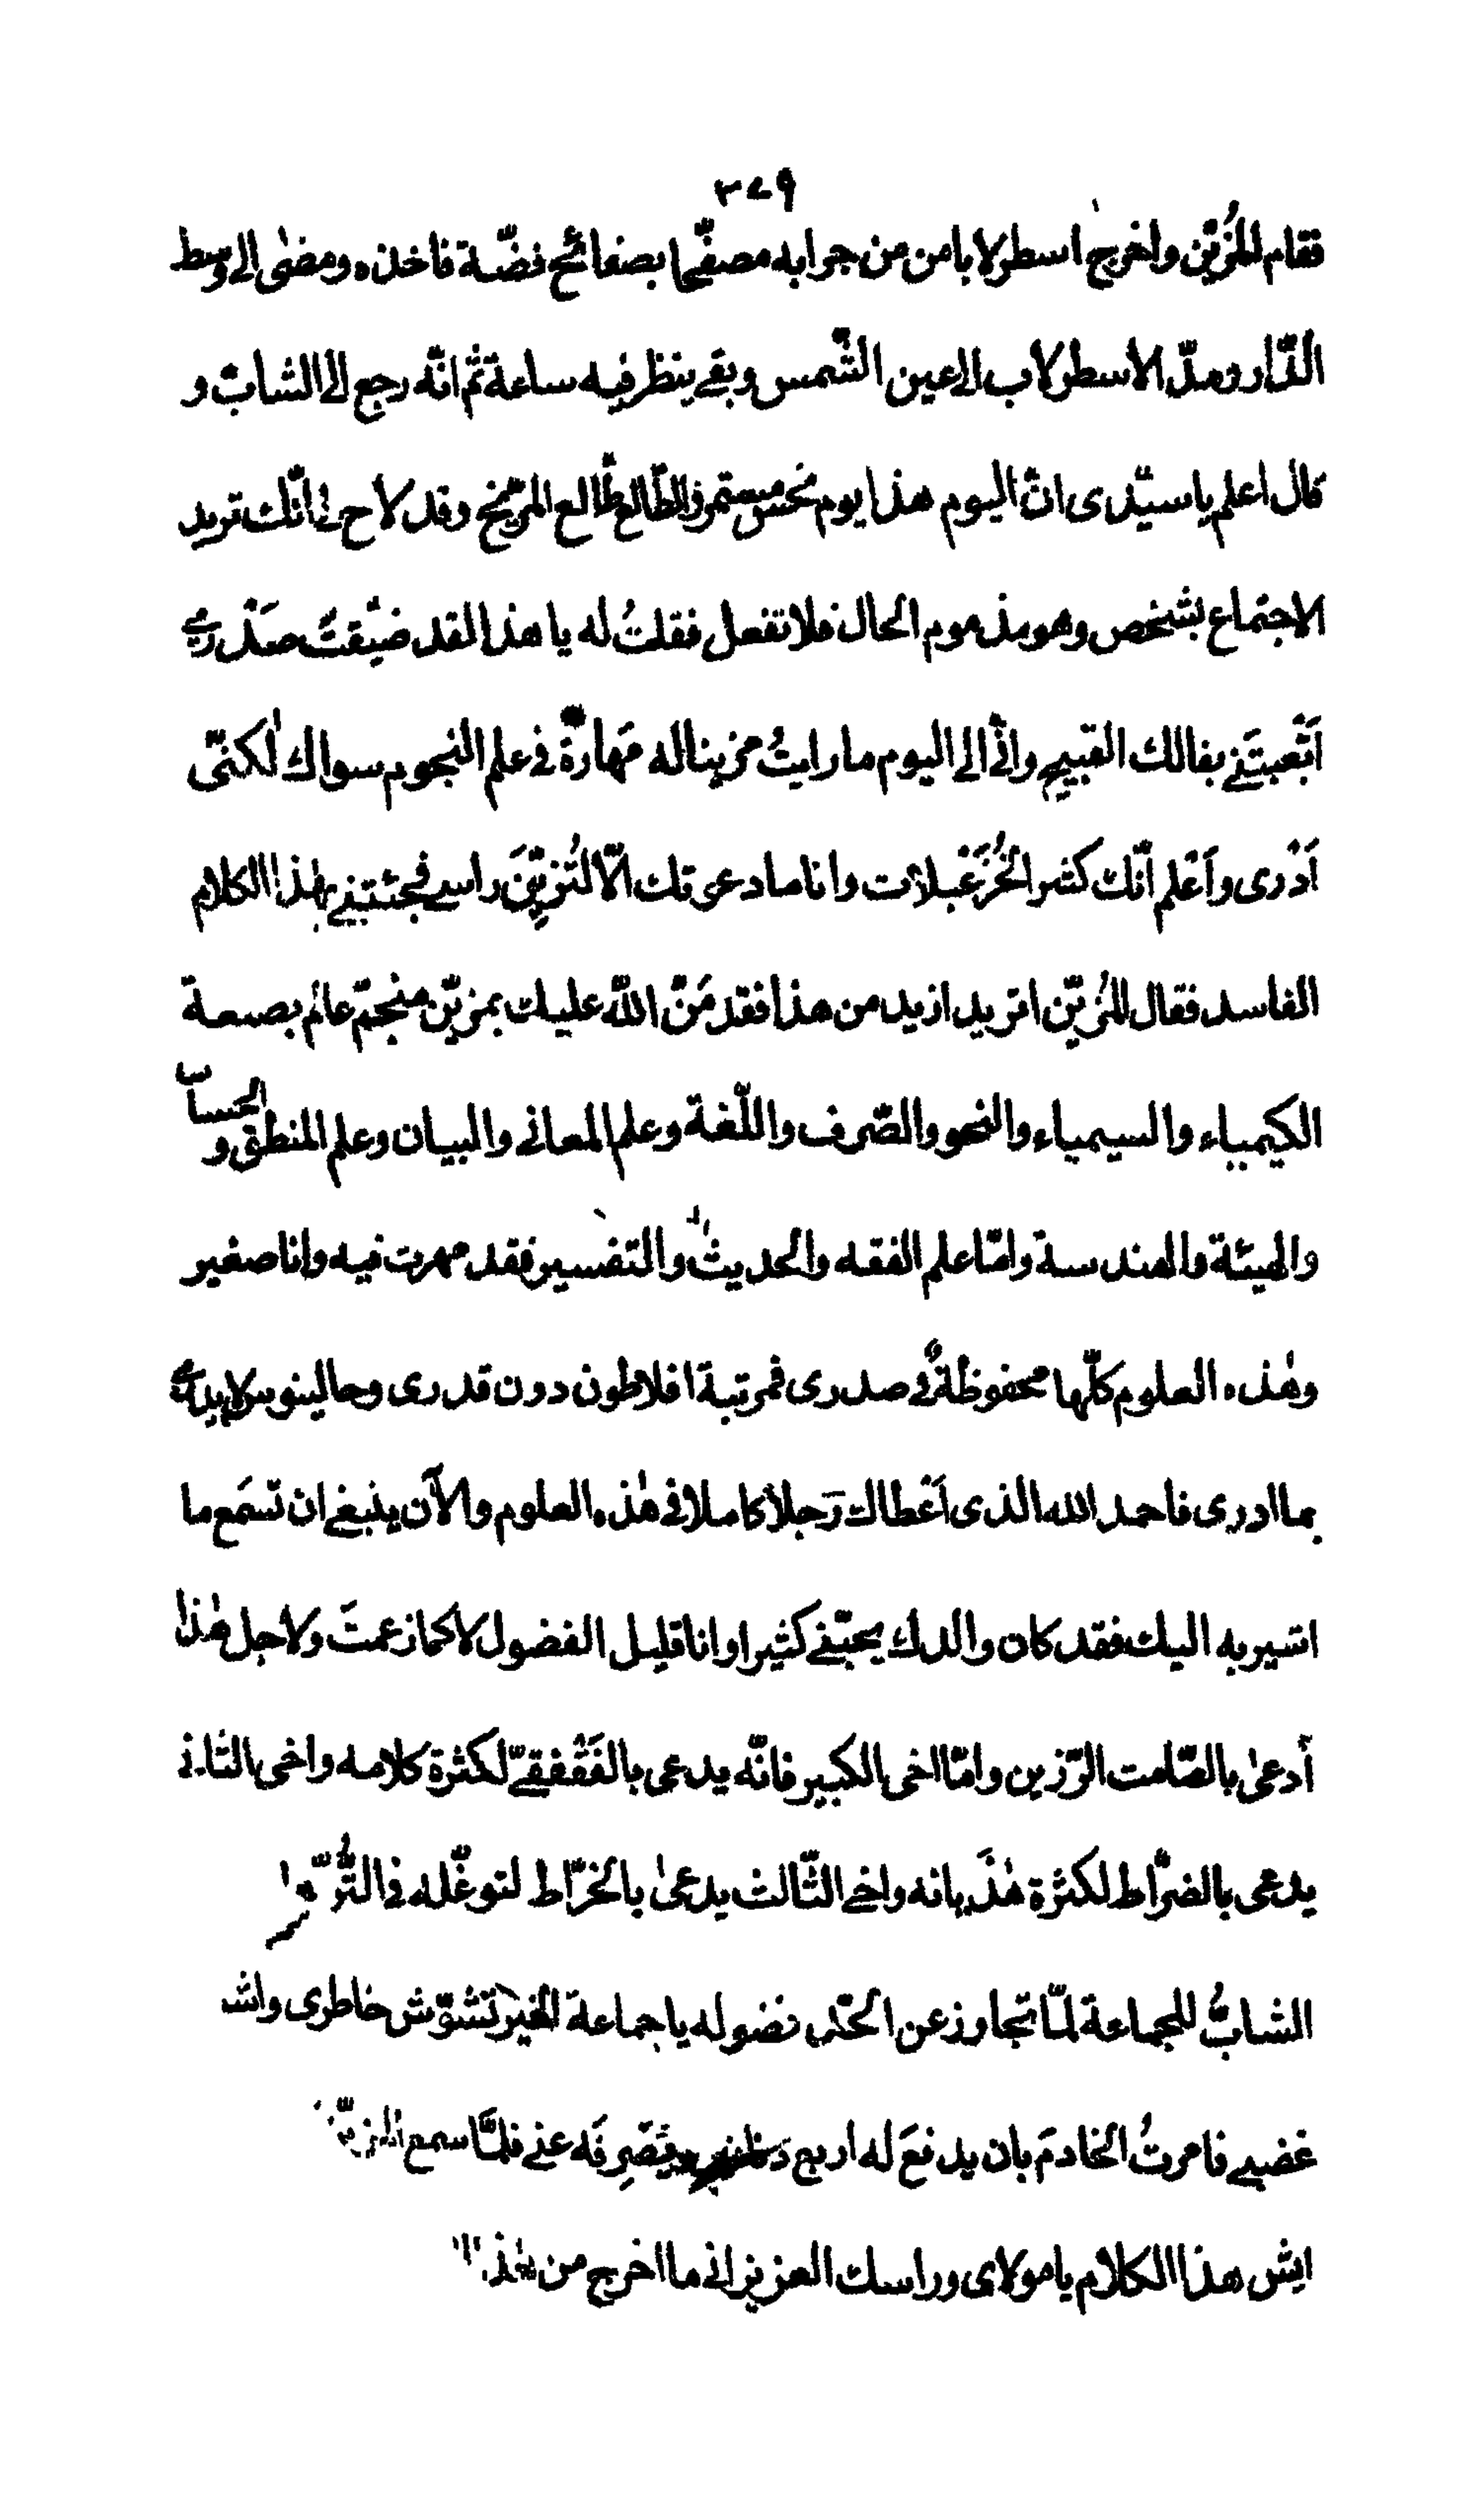 ٣٤٩
فقام المُزيّن واخرج اسطرلابا من من جرابه مصفّحا بصفائح فضّة فاخذه ومضىٰ الى وسط
الدّار ومدّ الاسطرلاب الى عين الشّمس وبقى ينظر فيه ساعة ثم انّه رجع الى الشابّ و
قال اعلم يا سيّدى انّ اليوم هذا يوم نحس مستمر والطّالع طّالع المرّيخ وقد لاح لى انّك تريد
الاجتماع بشخص وهو مذموم الحال فلا تفعل فقلتُ له يا هذا لقد ضيّقتَ صَدْرى
اتْعبتَنى بفالك القبيح وانّى الى اليوم ما رايتُ مزينا له مَهارةً فى علم النجوم سواك لٰكنّى
اَدْرى واَعْلم انّك كثير الخُزَعْبلات وانا ما دعوتك الّا لتُزيّنَ راسى فجئتنى بهذا الكلام
الفاسد فقال المُزيّن اتريد ازيد من هذا فقد مَنّ اللّٰه عليك بمزيّن منجّم عالم بصنعة
الكيمياء والسيمياء والنحو والصّرف واللّغة وعلم المعانى والبيان وعلم المنطق والحساب
والهيئة والهندسة وامّا علم الفقه والحديث والتفسير فقد مهرت فيه وانا صغير
وهٰذه العلوم كلّها محفوظةٌ فى صدرى فمرتبة افلاطون دون قدرى وجالينوس لا يدرى
بما ادرى فاحمد اللّٰه الذى اَعْطاك رَجلا كاملا فى هٰذه العلوم والآن ينبغى ان تسْمَع ما
اشير به اليك فقد كان والدك يحبّنى كثيرا وانا قليل الفضول لا كما زعمتَ ولاجل هٰذا
اُدعىٰ بالصّامت الرّزين وامّا اخى الكبير فانّه يدعى بالفَقْفقىّ لكثرة كلامه واخى الثانى
يدعى بالضرّاط لكثرة هٰذَيانه واخى الثّالث يدعىٰ بالخرّاط لتوغّله فى
الشابُّ للجماعة لمّا تجاوز عن الحدّ فضوله يا جماعة الخير تشوّش خاطرى واشتد
غضبى فامرتُ الخادمَ بان يدفعَ له اربع ويَصْرِفَه عنى فلمّا سمع المزيّن
ايش هذا الكلام يا مولاى وراسك العزيز انى ما اخرج من هٰذا